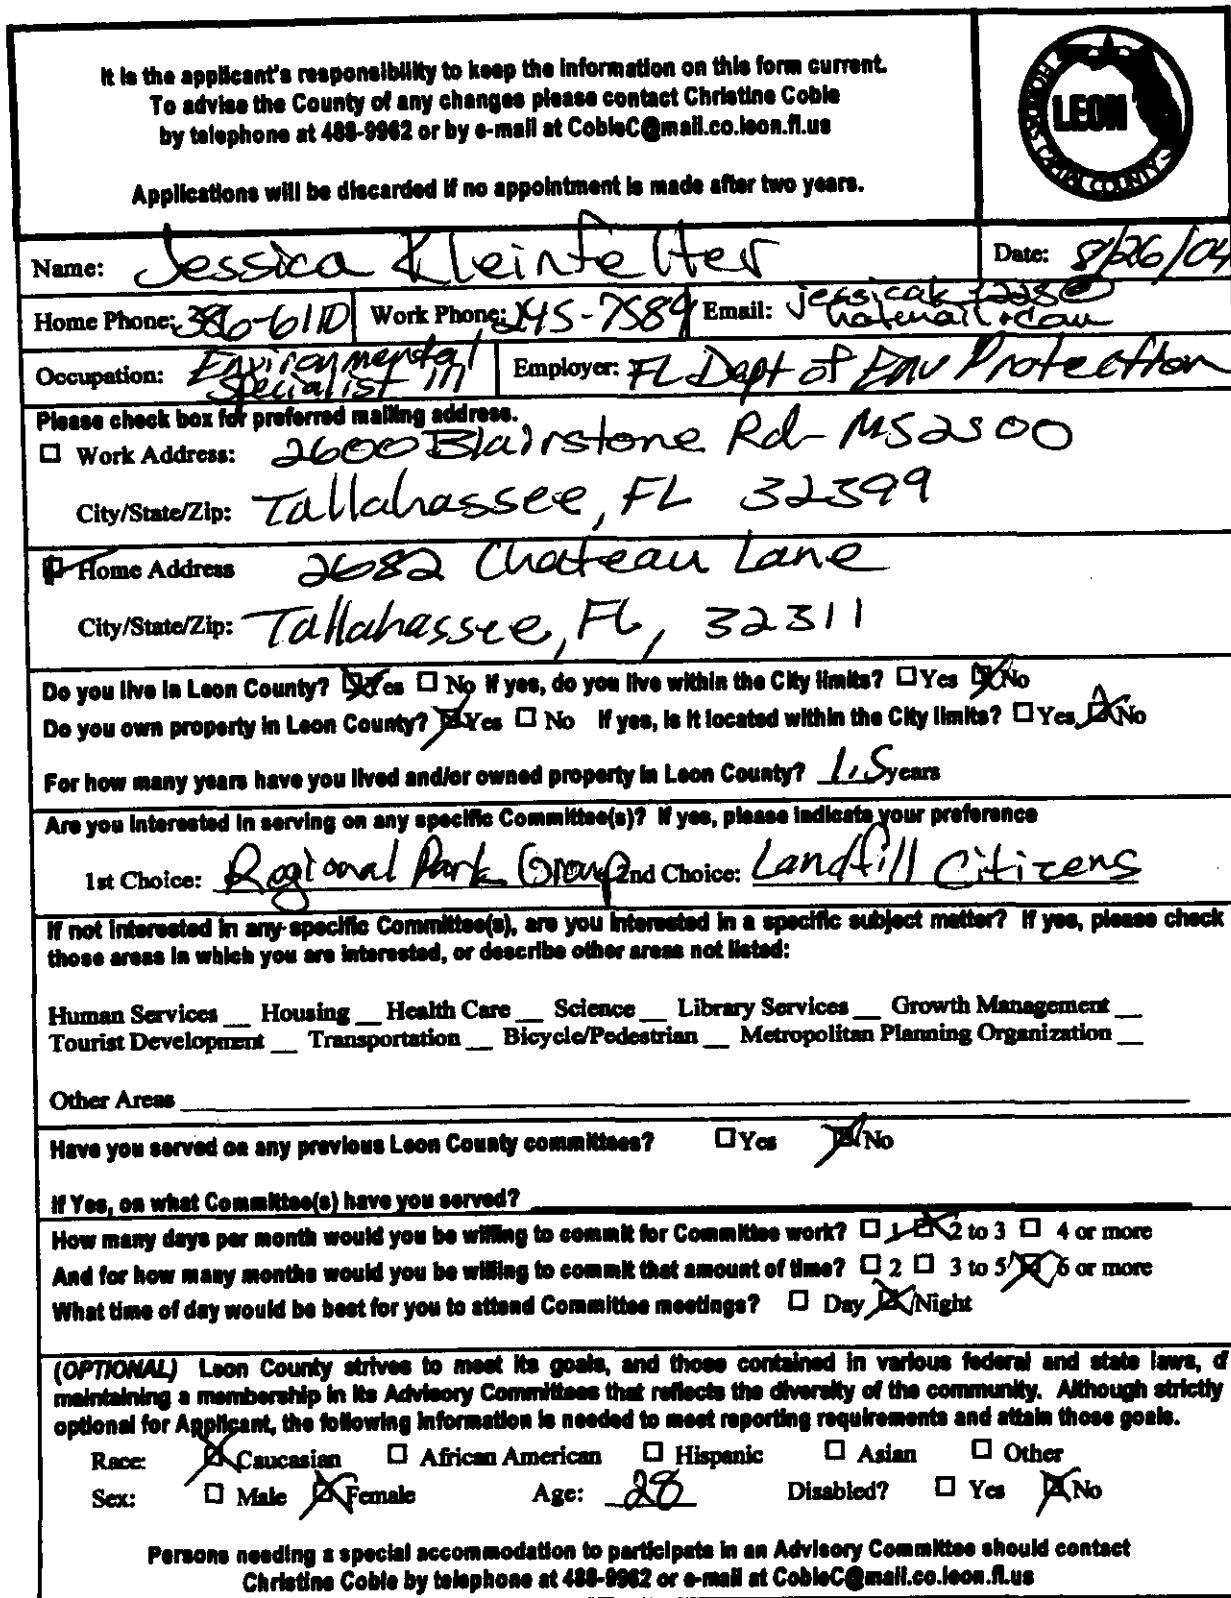 It is the applicant's responsibility to keep the information on this form current.
To advise the County of any changes please contact Christine Coble
by telephone at 488-9962 or by e-mail at CobleC@mail.co.leon.fl.us
Applications will be discarded if no appointment is made after two years.
LEON
FLORIDA'S CAPITAL COUNTY
Name: Jessica Kleinfelter
Date: 8/26/04
Home Phone: 386-6110 Work Phone: 245-7589 Email:
hotmail.com
Occupation: Environmental Specialist III Employer: FL Dept of Env Protection
Please check box for preferred mailing address.
☐ Work Address: 2600 Blairstone Rd MS2500
City/State/Zip: Tallahassee, FL 32399
☒ Home Address 2682 Chateau Lane
City/State/Zip: Tallahassee, FL, 32311
Do you live in Leon County? ☒ Yes ☐ No If yes, do you live within the City limits? ☐ Yes ☒ No
Do you own property in Leon County? ☒ Yes ☐ No If yes, is it located within the City limits? ☐ Yes ☒ No
For how many years have you lived and/or owned property in Leon County? 1.5 years
Are you interested in serving on any specific Committee(s)? If yes, please indicate your preference
1st Choice: Regional Park Group 2nd Choice: Landfill Citizens
If not interested in any specific Committee(s), are you interested in a specific subject matter? If yes, please check
those areas in which you are interested, or describe other areas not listed:
Human Services __ Housing __ Health Care __ Science __ Library Services __ Growth Management __
Tourist Development __ Transportation __ Bicycle/Pedestrian __ Metropolitan Planning Organization __
Other Areas
Have you served on any previous Leon County committees? ☐ Yes ☒ No
If Yes, on what Committee(s) have you served?
How many days per month would you be willing to commit for Committee work? ☐ 1 ☒ 2 to 3 ☐ 4 or more
And for how many months would you be willing to commit that amount of time? ☐ 2 ☐ 3 to 5 ☒ 6 or more
What time of day would be best for you to attend Committee meetings? ☐ Day ☒ Night
(OPTIONAL) Leon County strives to meet its goals, and those contained in various federal and state laws, of
maintaining a membership in its Advisory Committees that reflects the diversity of the community. Although strictly
optional for Applicant, the following information is needed to meet reporting requirements and attain those goals.
Race: ☒ Caucasian ☐ African American ☐ Hispanic ☐ Asian ☐ Other
Sex: ☐ Male ☒ Female Age: 28 Disabled? ☐ Yes ☒ No
Persons needing a special accommodation to participate in an Advisory Committee should contact
Christine Coble by telephone at 488-9962 or e-mail at CobleC@mail.co.leon.fl.us